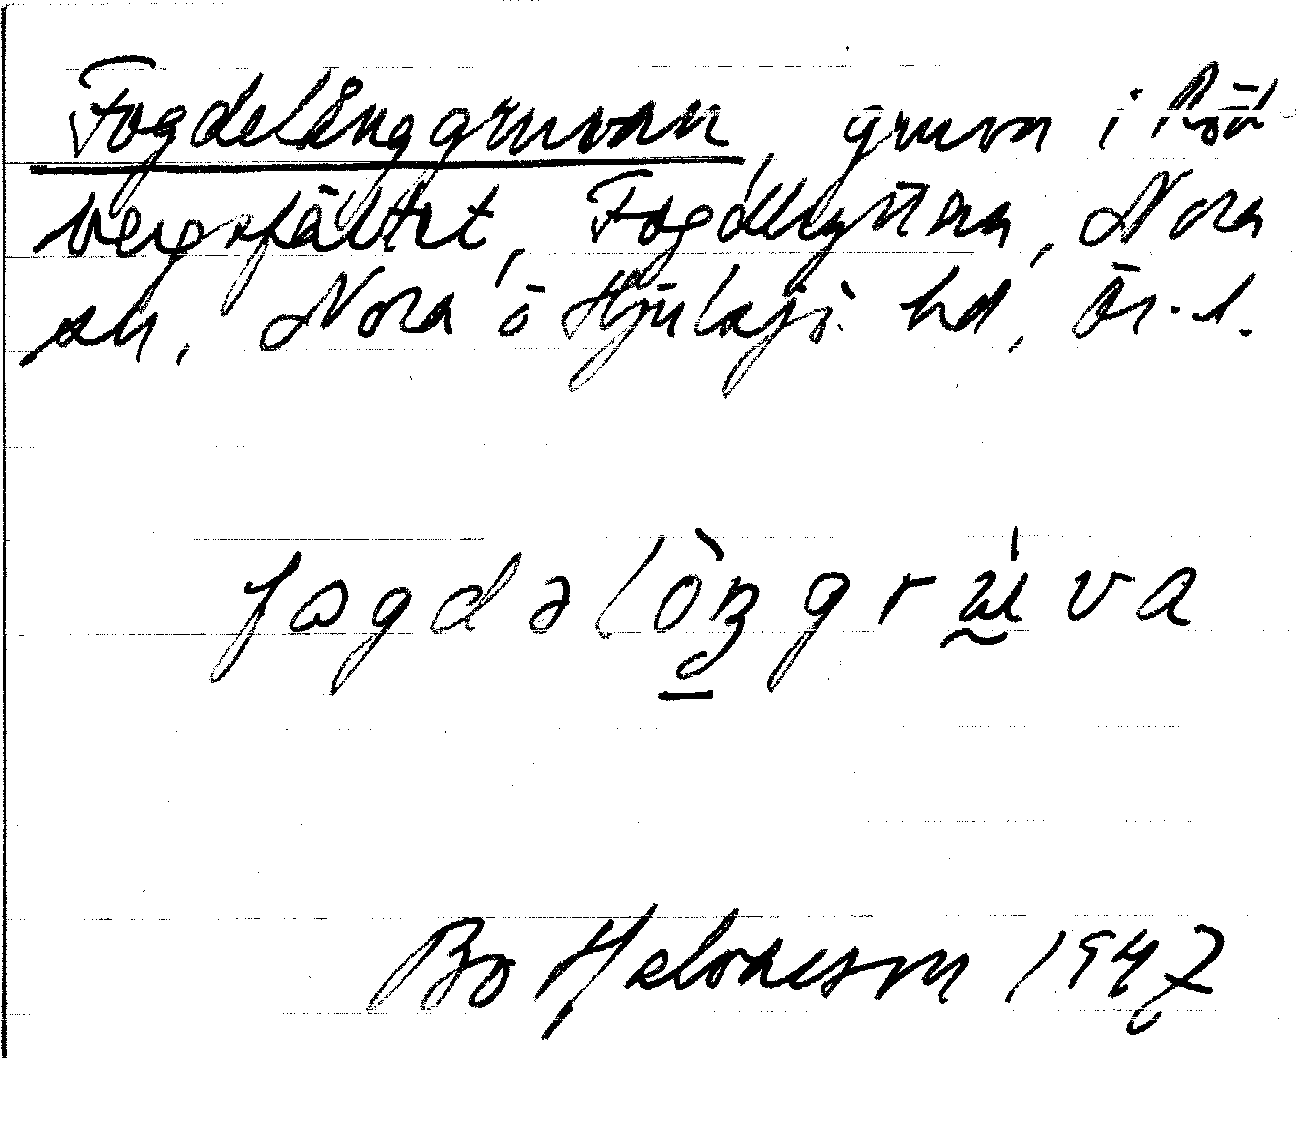 Fogdelånggruvan, gruva i Röd
bergsfältet, Fogdehyttan, Nora
sn, Nora o Hjulsjö hd, Ör. l.
fogdəlòŋgrúva
Bo Helonesson 1947